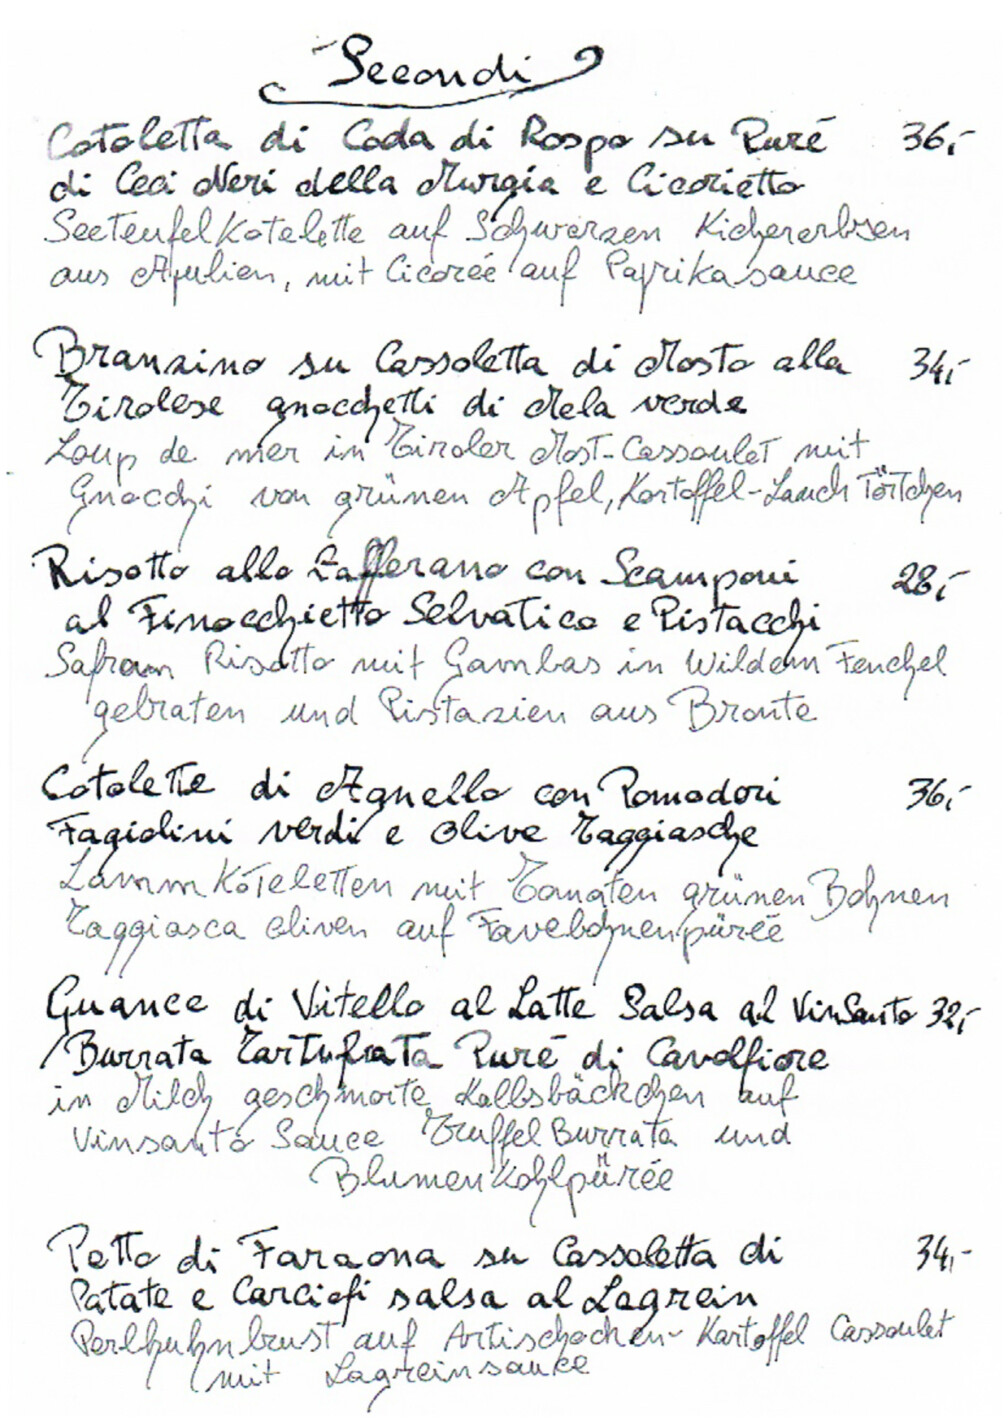 Secondi
Cotoletta di Coda di Rospo su Puré 36,-
di Ceci Neri della Murgia e Cicorietta
Seeteufel Kotelette auf Schwarzen Kichererbsen
aus Apulien, mit Cicorée auf Paprikasauce
Branzino su Cassoletta di Mosto alla 34,-
Tirolese gnocchetti di Mela verde
Loup de mer in Tiroler Most-Cassoulet mit
Gnocchi von grünen Apfel, Kartoffel-Lauch Törtchen
Risotto allo Zafferano con Scamponi 28,-
al Finocchietto Selvatico e Pistacchi
Safran Risotto mit Gambas in Wildem Fenchel
gebraten und Pistazien aus Bronte
Cotolette di Agnello con Pomodori 36,-
Fagiolini verdi e Olive Taggiasche
Lamm Koteletten mit Tomaten grünen Bohnen
Taggiasca Oliven auf Favebohnenpürée
Guance di Vitello al Latte Salsa al VinSanto 32,-
Burrata Tartufata Puré di Cavolfiore
in Milch geschmorte Kalbsbäckchen auf
Vinsanto Sauce Trüffel Burrata und
Blumenkohlpürée
Petto di Faraona su Cassoletta di 34,-
Patate e Carciofi salsa al Lagrein
Perlhuhnbrust auf Artischocken-Kartoffel Cassoulet
mit Lagreinsauce